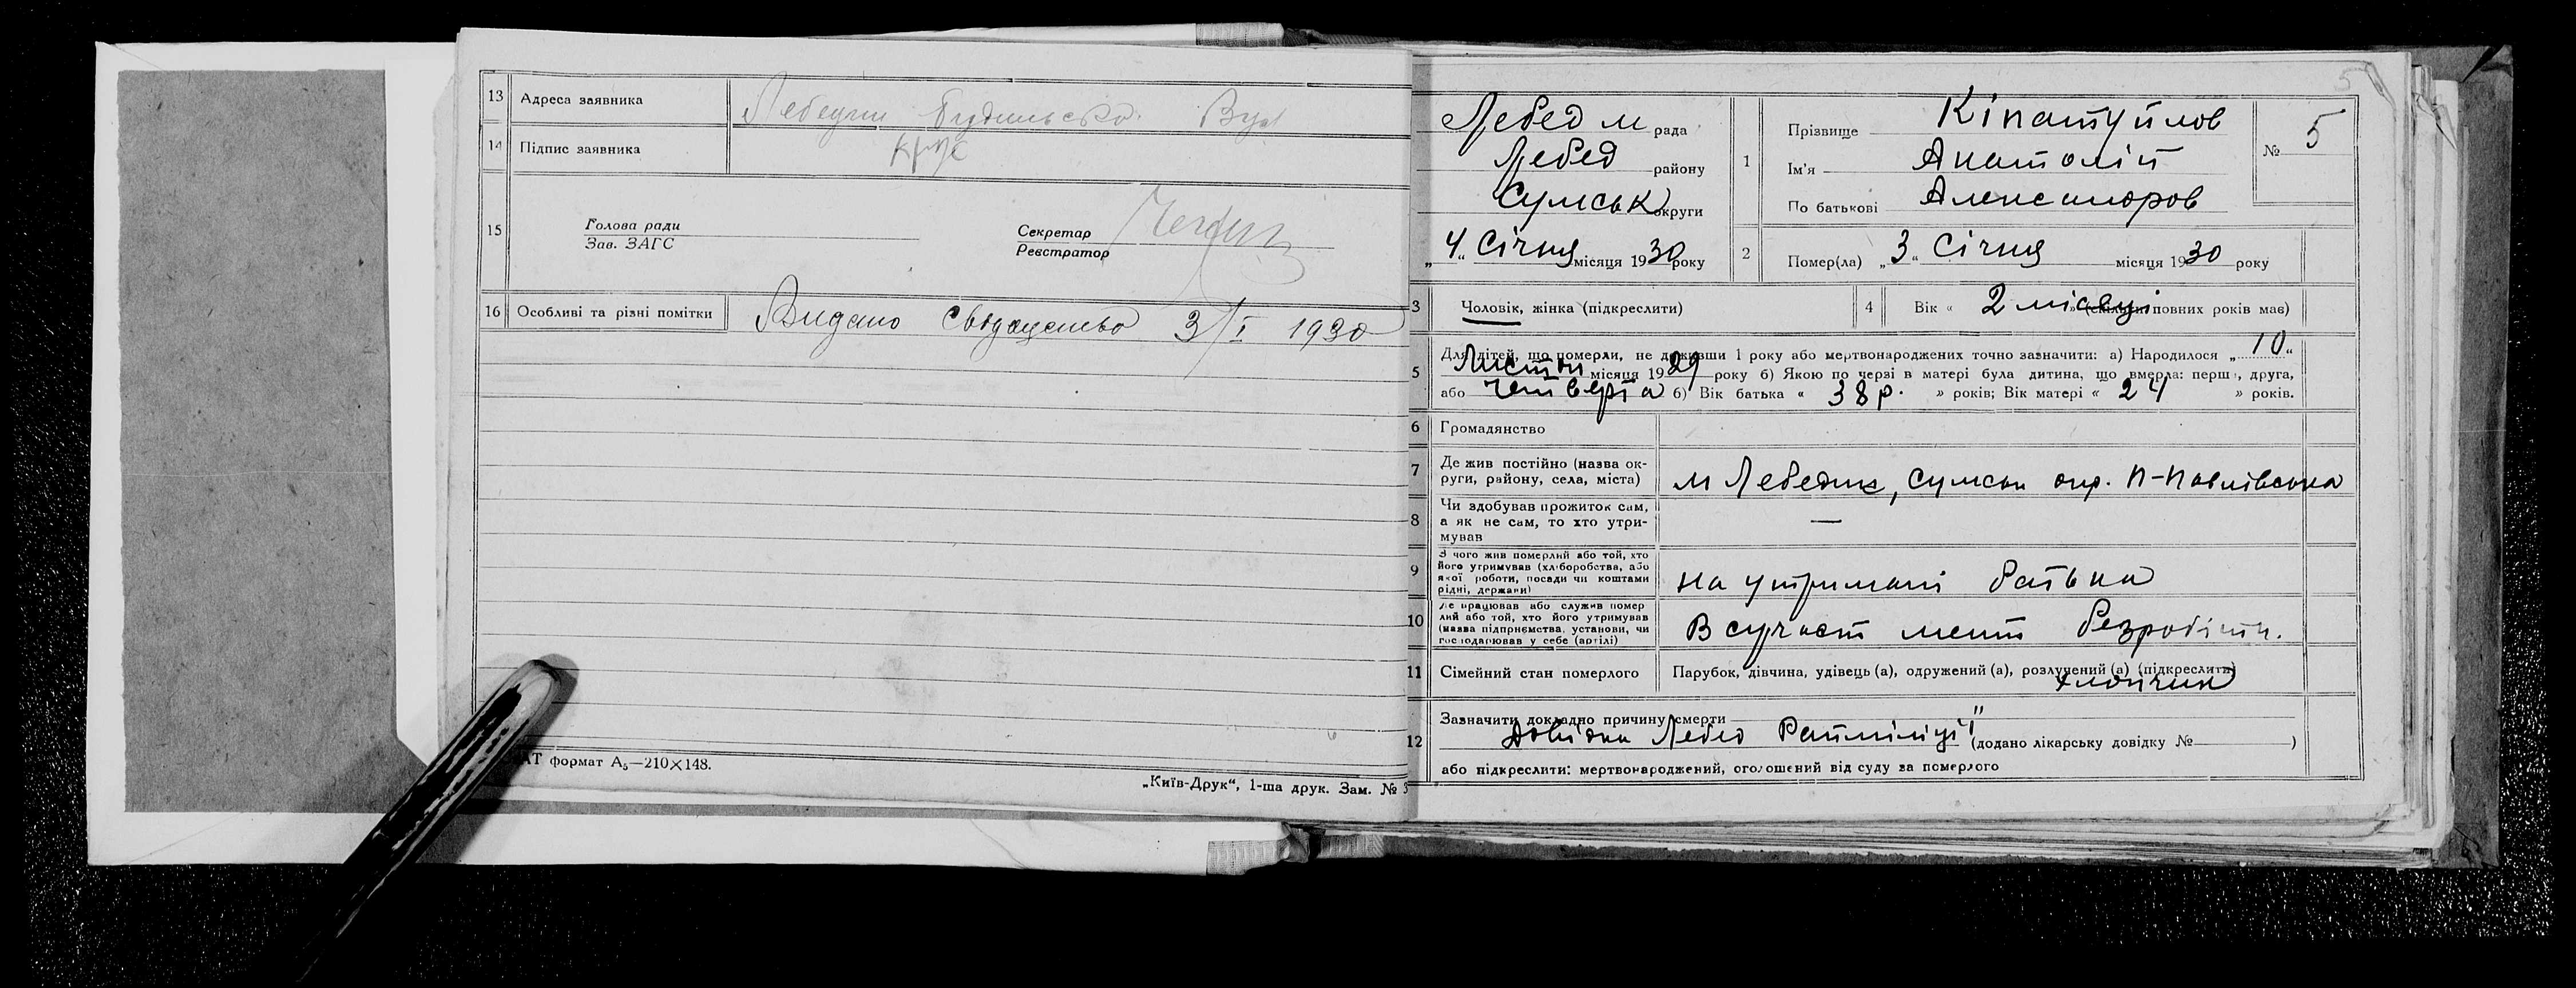 13 Адреса заявника Лебедин Будильська Вул
14 Підпис заявника
15 Голова ради
Зав. ЗАГС
Секретар
Реєстратор
16 Особливі та різні помітки Видано свідоцтво 3/I 1930
АТ формат А₅—210×148.
„Київ-Друк“, 1-ша друк. Зам. №
5
Лебед м рада
Лебед району
Сумськ округи
„4“ Січня місяця 1930 року
1 Прізвище
Ім'я Анатолій
По батькові Александров
№ 5
2 Помер(ла) „3“ Січня місяця 1930 року
3 Чоловік, жінка (підкреслити)
4 Вік « 2 місяці » (скільки повних років має)
5 Для дітей, що померли, не доживши 1 року або мертвонароджених точно зазначити: а) Народилося „10“
Листоп місяця 1929 року б) Якою по черзі в матері була дитина, що вмерла: перша, друга,
або четверта б) Вік батька « 38 р. » років; Вік матері « 24 » років.
6 Громадянство
7 Де жив постійно (назва ок-
руги, району, села, міста) м Лебедин, Сумськ окр. П-Павлівська
8 Чи здобував прожиток сам,
а як не сам, то хто утри-
мував —
9 З чого жив померлий або той, хто
його утримував (хліборобства, або
якої роботи, посади чи коштами
рідні, держави) на утримані батька
10 Де працював або служив помер
лий або той, хто його утримував
(назва підприємства, установи, чи
господарював у себе (артілі) В сучаст мент безробітн.
11 Сімейний стан померлого Парубок, дівчина, удівець (а), одружений (а), розлучений (а) (підкреслити)
хлопчик
12 Зазначити докладно причину смерти
Довідки Лебед (додано лікарську довідку № )
або підкреслити: мертвонароджений, оголошений від суду за померлого